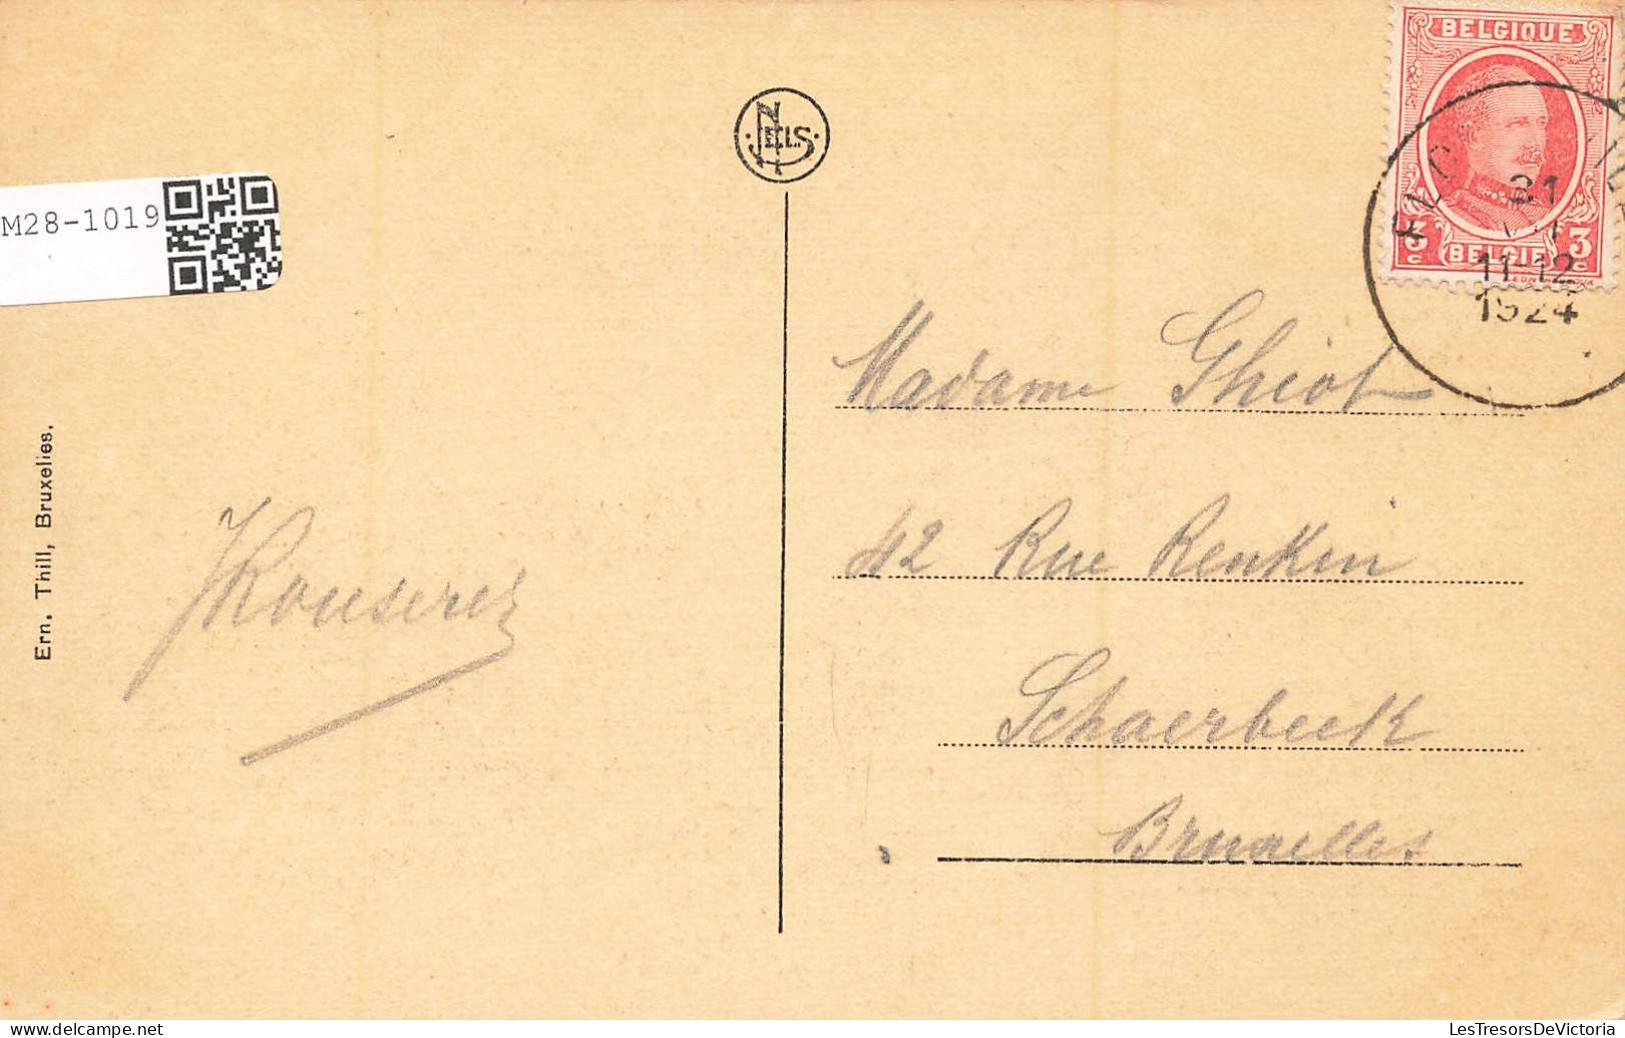 BELGIQUE
NELS
M28-1019
31
3 c BELGIË 3 c
11-12
1924
Madame Ghiot
42 Rue Renkin
Schaerbeek
Bruxelles
Ern. Thill, Bruxelles.
LesTresorsDeVictoria
delcampe.net